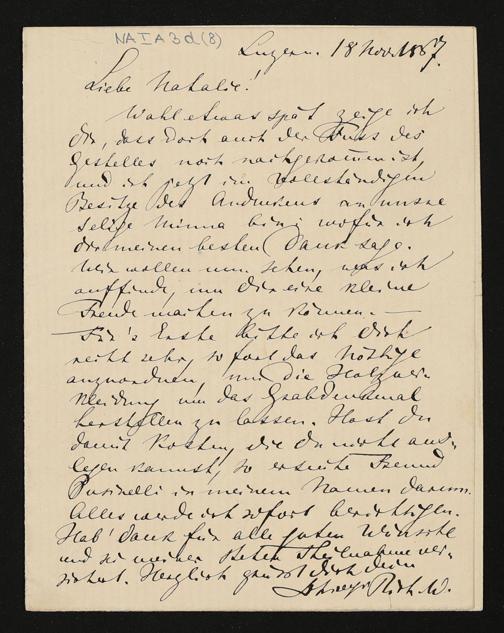 NA I A 3 d (8)
Luzern. 18 Nov. 1867.
Liebe Natalie!
Wohl etwas spät zeige ich
dir, dass doch auch der Fuss des
Gestelles noch nachgekommen ist,
und ich jetzt im vollständigen
Besitze des Andenkens an unsre
selige Minna bin; wofür ich
dir meinen besten Dank sage.
Wir wollen nun sehen, was ich
auffinde, um dir eine kleine
Freude machen zu können. —
Für's Erste bitte ich dich
recht sehr, sofort das Nöthige
anzuordnen, um die Holzver-
kleidung um das Grabdenkmal
herstellen zu lassen. Hast du
damit Kosten, die du nicht aus-
legen kannst, so ersuche Freund
Pusinelli in meinem Namen darum.
Alles werde ich sofort berichtigen.
Hab' Dank für alle guten Wünsche
und sei meiner steten Theilnahme ver-
sichert. Herzlich grüsst dich dein
Schwager Rich. W.